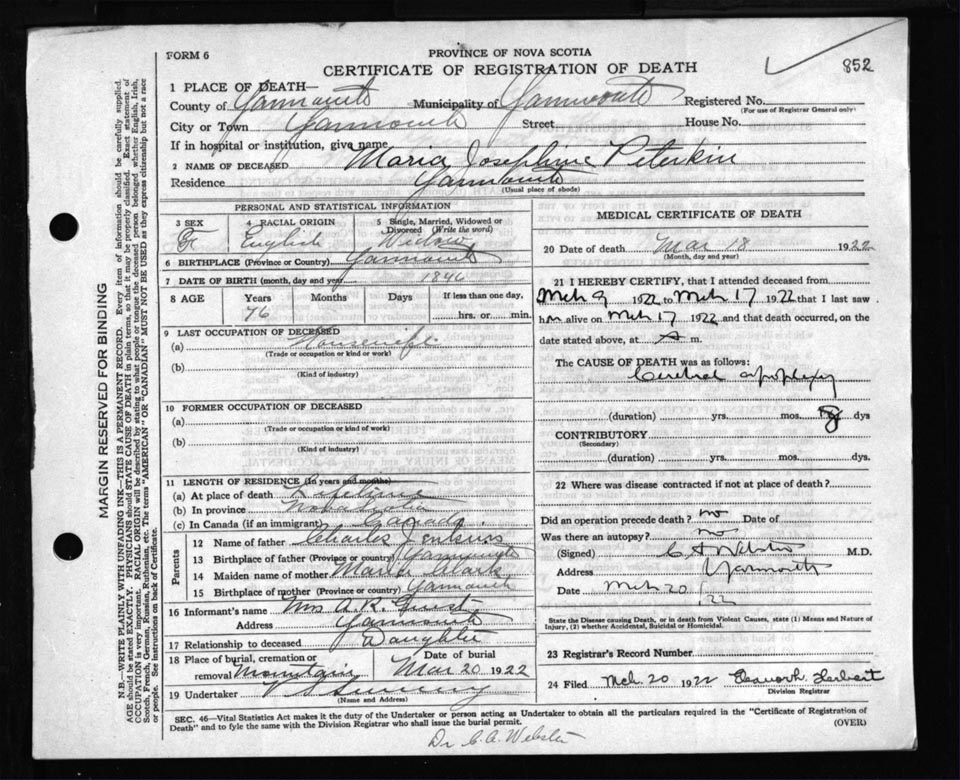 FORM 6
PROVINCE OF NOVA SCOTIA
CERTIFICATE OF REGISTRATION OF DEATH
852
1 PLACE OF DEATH—
County of Yarmouth Municipality of Yarmouth Registered No.
(For use of Registrar General only)
City or Town Yarmouth Street House No.
If in hospital or institution, give name
2 NAME OF DECEASED Maria Josephine Peterkin
Residence Yarmouth
(Usual place of abode)
PERSONAL AND STATISTICAL INFORMATION
3 SEX
F
4 RACIAL ORIGIN
English
5 Single, Married, Widowed or Divorced (Write the word)
Widow
6 BIRTHPLACE (Province or Country) Yarmouth
7 DATE OF BIRTH (month, day and year) 1846
8 AGE Years Months Days If less than one day,
76 hrs. or min.
9 LAST OCCUPATION OF DECEASED
(a) Housewife
(Trade or occupation or kind or work)
(b)
(Kind of industry)
10 FORMER OCCUPATION OF DECEASED
(a)
(Trade or occupation or kind of work)
(b)
(Kind of industry)
11 LENGTH OF RESIDENCE (In years and months)
(a) At place of death Lifetime
(b) In province Nova Scotia
(c) In Canada (if an immigrant) Canada.
Parents
12 Name of father Charles Jenkins
13 Birthplace of father (Province or country) Yarmouth
14 Maiden name of mother Maria Clark
15 Birthplace of mother (Province or country) Yarmouth
16 Informant's name Mrs A. K. Guest
Address Yarmouth
17 Relationship to deceased Daughter
18 Place of burial, cremation or removal Mountain
Date of burial
Mar 20 1922
19 Undertaker
(Name and Address)
MEDICAL CERTIFICATE OF DEATH
20 Date of death Mar 18 1922
(Month, day and year)
21 I HEREBY CERTIFY, that I attended deceased from
Mch 9 1922 to Mch 17 1922 that I last saw
h alive on Mch 17 1922 and that death occurred, on the
date stated above, at A m.
The CAUSE OF DEATH was as follows:
Cerebral apoplexy
(duration) yrs. mos. 8 dys
CONTRIBUTORY
(Secondary)
(duration) yrs. mos. dys.
22 Where was disease contracted if not at place of death?
Did an operation precede death? no Date of
Was there an autopsy? no
(Signed) C A Webster M.D.
Address Yarmouth
Date Mch 20 22
State the Disease causing Death, or in death from Violent Causes, state (1) Means and Nature of
Injury, (2) whether Accidental, Suicidal or Homicidal.
23 Registrar's Record Number
24 Filed Mch 20 1922 Herbert
Division Registrar
SEC. 46—Vital Statistics Act makes it the duty of the Undertaker or person acting as Undertaker to obtain all the particulars required in the "Certificate of Registration of
Death" and to file the same with the Division Registrar who shall issue the burial permit.
(OVER)
Dr C. A. Webster
MARGIN RESERVED FOR BINDING
N.B.—WRITE PLAINLY WITH UNFADING INK—THIS IS A PERMANENT RECORD. Every item of information should be carefully supplied.
AGE should be stated EXACTLY. PHYSICIANS should STATE CAUSE OF DEATH in plain terms, so that it may be properly classified. Exact statement of
OCCUPATION is very important. RACIAL ORIGIN will be described by stating to what people or tongue the deceased person belonged whether English, Irish,
Scotch, French, German, Russian, Ruthenian, etc. The terms "AMERICAN" OR "CANADIAN" MUST NOT BE USED as they express citizenship but not a race
or people. See instructions on back of Certificate.